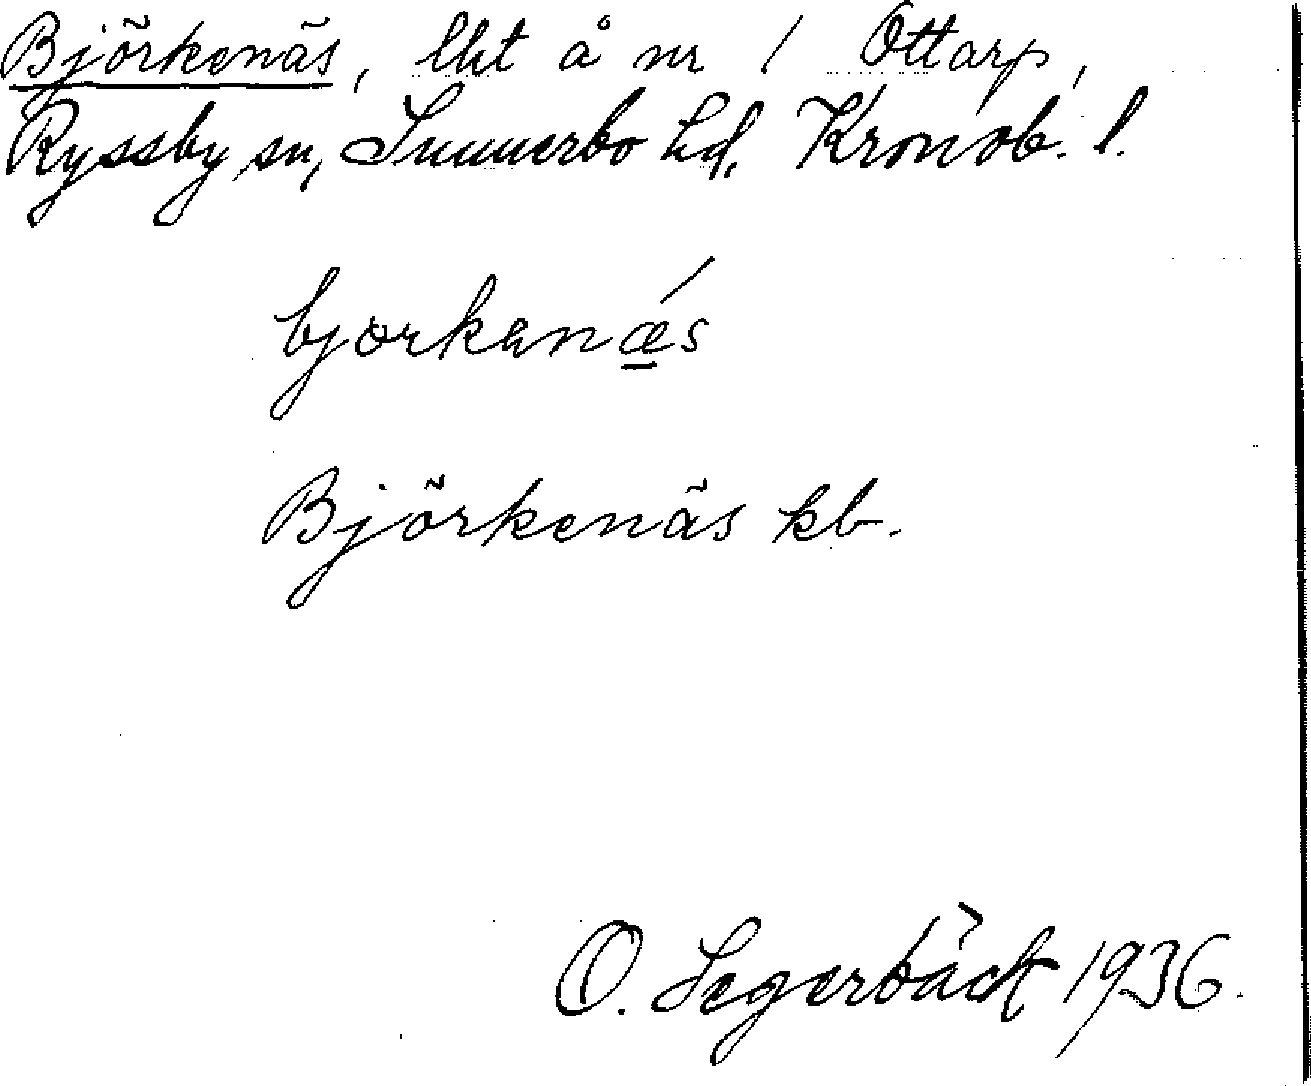 Björkenäs, lht å nr 1 Ottarp,
Ryssby sn, Sunnerbo hd, Kronob. l.
bjorkenǽs
Björkenäs kb.
O. Segerbäck 1936.